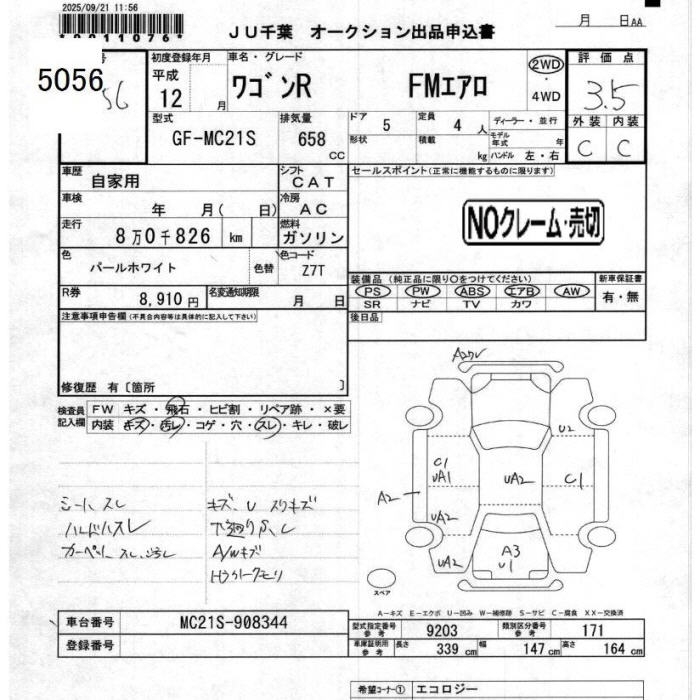 2025/09/21 11:56
JU千葉 オークション出品申込書
月 日AA
5056
初度登録年月
平成
12 月
車名・グレード
ワゴンR FMエアロ
2WD
4WD
評価点
3.5
外装 内装
C C
型式
GF-MC21S
排気量
658
cc
ドア 5
形状
定員 4 人
積載 kg
ディーラー・並行
モデル年式 年
ハンドル 左・右
車歴
自家用
シフト
CAT
セールスポイント(正常に機能するものに限ります)
車検
年 月( 日)
冷房
AC
NOクレーム・売切
走行
8万0千826 km
燃料
ガソリン
色
パールホワイト
色替
色コード
Z7T
装備品(純正品に限り○をつけてください)
新車保証書
PS PW ABS エアB AW
SR ナビ TV カワ
有・無
R券
8,910円
名変通知期限
月 日
後日品
注意事項申告欄(不具合内容等は具体的に記入して下さい)
修復歴 有〔箇所 〕
検査員記入欄
FW キズ・飛石・ヒビ割・リペア跡・×要
内装 キズ・汚レ・コゲ・穴・スレ・キレ・破レ
A2ワレ
U2
C1
UA1
UA2
C1
A2
UA2
UA2
A3
U1
スペア
シートスレ
キズ、U スリキズ
A/Wキズ
A−キズ E−エクボ U−凹み W−補修跡 S−サビ C−腐食 XX−交換済
車台番号
MC21S-908344
登録番号
型式指定番号 参考
9203
類別区分番号 参考
171
車庫証明用 参考
長さ 339 cm
幅 147 cm
高さ 164 cm
希望コーナー① エコロジー